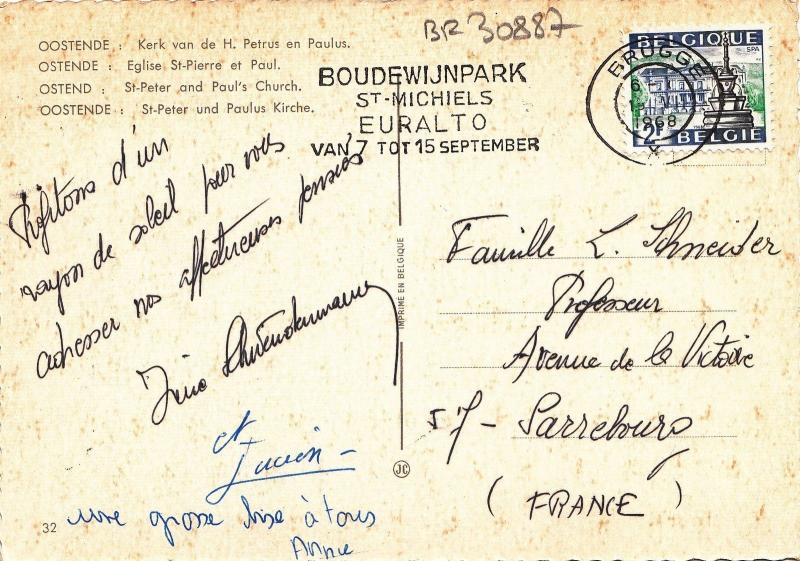 BR 30887
OOSTENDE : Kerk van de H. Petrus en Paulus.
OSTENDE : Eglise St-Pierre et Paul.
OSTEND : St-Peter and Paul's Church.
OOSTENDE : St-Peter und Paulus Kirche.
BOUDEWIJNPARK
ST-MICHIELS
EURALTO
VAN 7 TOT 15 SEPTEMBER
BRUGGE
1968
BELGIQUE
SPA
2F
BELGIE
Profitons d'un
rayon de soleil pour vous
adresser nos affectueuses pensées
et
Lucien
une grosse bise à tous
Annie
32
IMPRIME EN BELGIQUE
JC
Famille L. Schneider
Professeur
Avenue de la Victoire
57- Sarrebourg
(FRANCE)